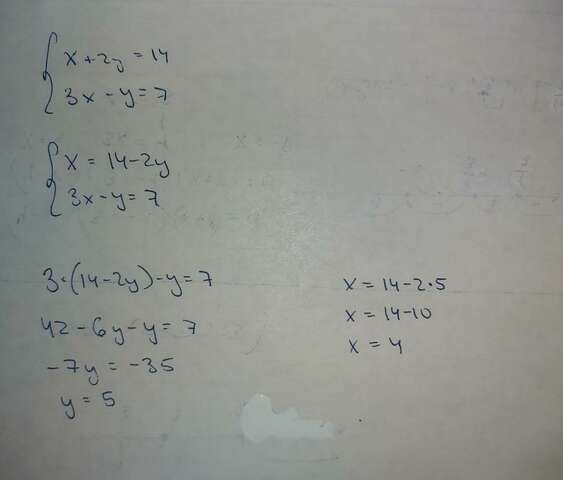 x + 2y = 14
3x - y = 7
x = 14 - 2y
3x - y = 7
3·(14 - 2y) - y = 7
42 - 6y - y = 7
-7y = -35
y = 5
x = 14 - 2·5
x = 14 - 10
x = 4